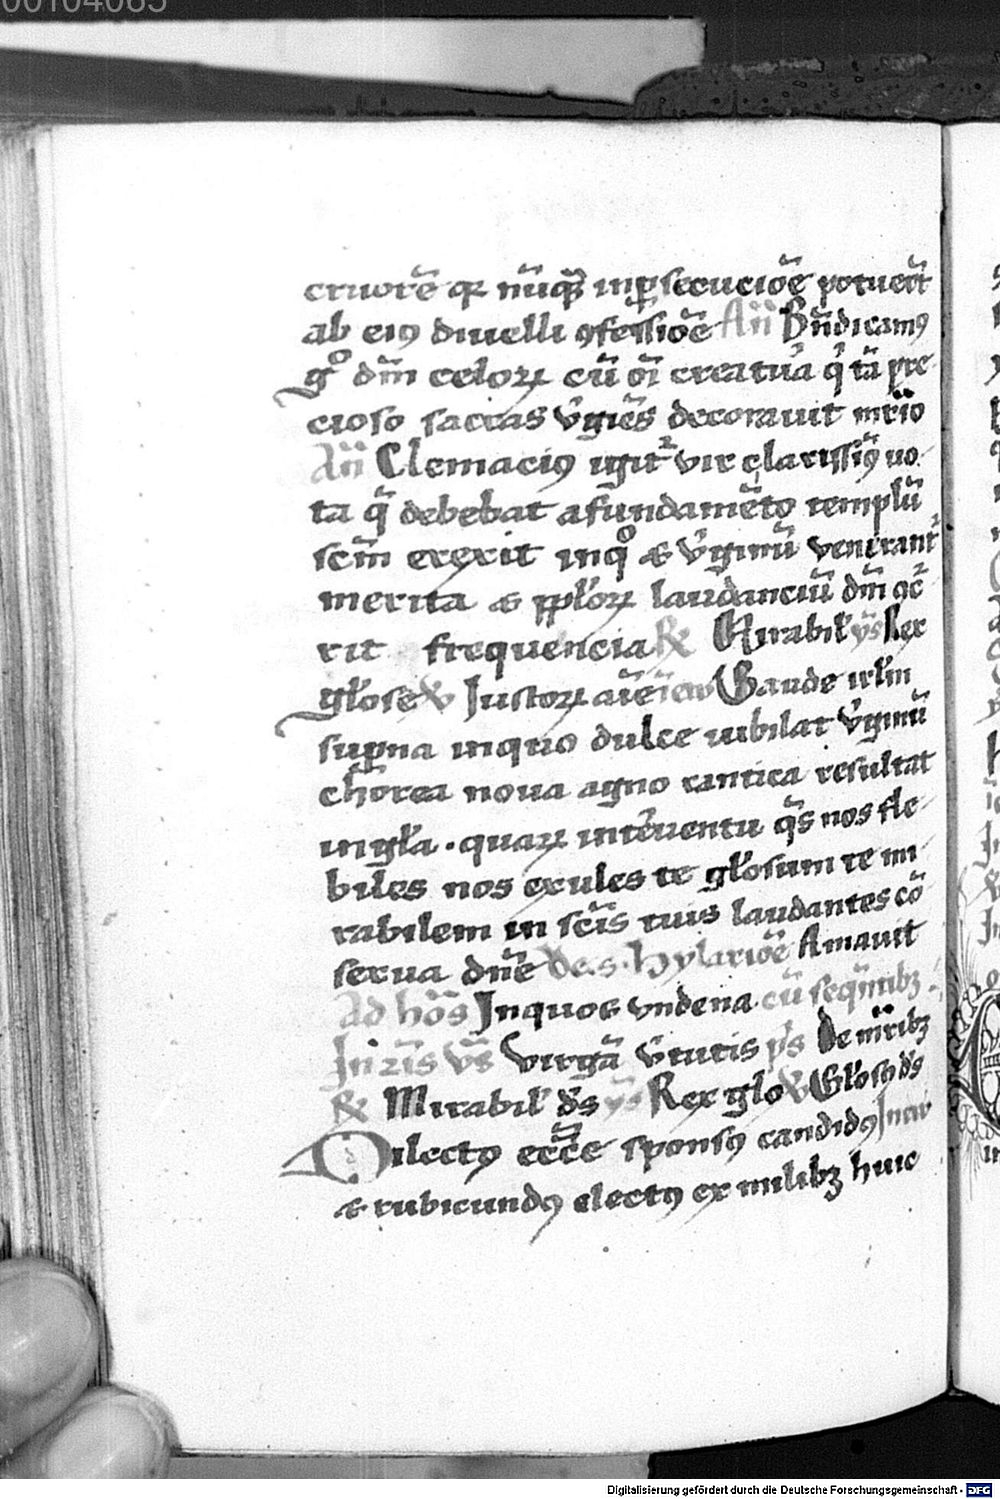 00104065
cruorē qꝛ nūqꝫ in ꝑsecucioē potuer̄t
ab eiꝰ diuelli ꝯfessioē Añ Bñdicamꝰ
gͦ dm̄ celoꝝ cū oī creatura q̄ tā pre
cioso sacras v̓gīes decorauit mr̄io
Añ Clemaciꝰ igit᷑ vir clarissimꝰ uo
ta q̄ debebat a fundamēto templū
scm̄ erexit in qͦ et v̓ginū venerant᷑
merita et pplōꝝ laudanciū dm̄ ꝯc̄
rit frequencia ℟ Mirabil̓ ꝟs Rex
gl̓ose ꝟ Justoꝝ aīe Gaude irl̓m
suꝑna in quo dulce iubilat v̓ginū
chorea noua agno cantica resultat
in gl̓a . quaꝝ interuentu q̄s nos fle
biles nos exules te gl̓osum te mi
rabilem in scīs tuis laudantes cō
serua dn̄e de . s . hylarioē Amauit
Ad hōs In quos vndena cū seqn̄tibꝫ
In ꝟs virgā v̓tutis p̄s De mr̄ibꝫ
℟ Mirabil̓ d̄s ꝟs Rex glo ꝟ Gl̓osꝰ d̄s
Dilectꝰ eccē sponsꝰ candidꝰ
et rubicundꝰ electꝰ ex milibꝫ huic
Digitalisierung gefördert durch die Deutsche Forschungsgemeinschaft - DFG